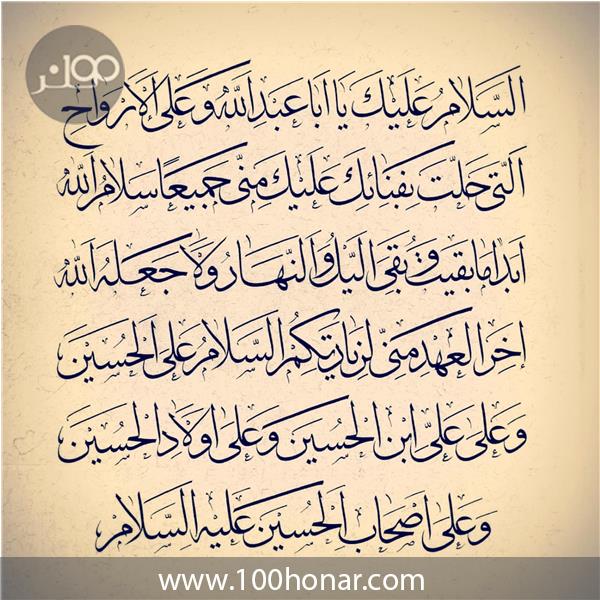 100هنر
السَّلامُ عَلَيْكَ يا اَبا عَبْدِ اللهِ وَ عَلَى الْاَرْواحِ
الَّتى حَلَّتْ بِفِنائِكَ عَلَيْكَ مِنّى جَميعاً سَلامُ اللهِ
اَبَداً ما بَقيتُ وَ بَقِىَ الَّيْلُ وَ النَّهارُ وَ لا جَعَلَهُ اللهُ
اخِرَ الْعَهْدِ مِنّى لِزِيارَتِكُمْ السَّلامُ عَلَى الْحُسَيْنِ
وَ عَلى عَلىِّ ابْنِ الْحُسَيْنِ وَ عَلى اَوْلادِ الْحُسَيْنِ
وَ عَلى اَصْحابِ الْحُسَيْنِ عَلَيْهِ السَّلامُ
www.100honar.com